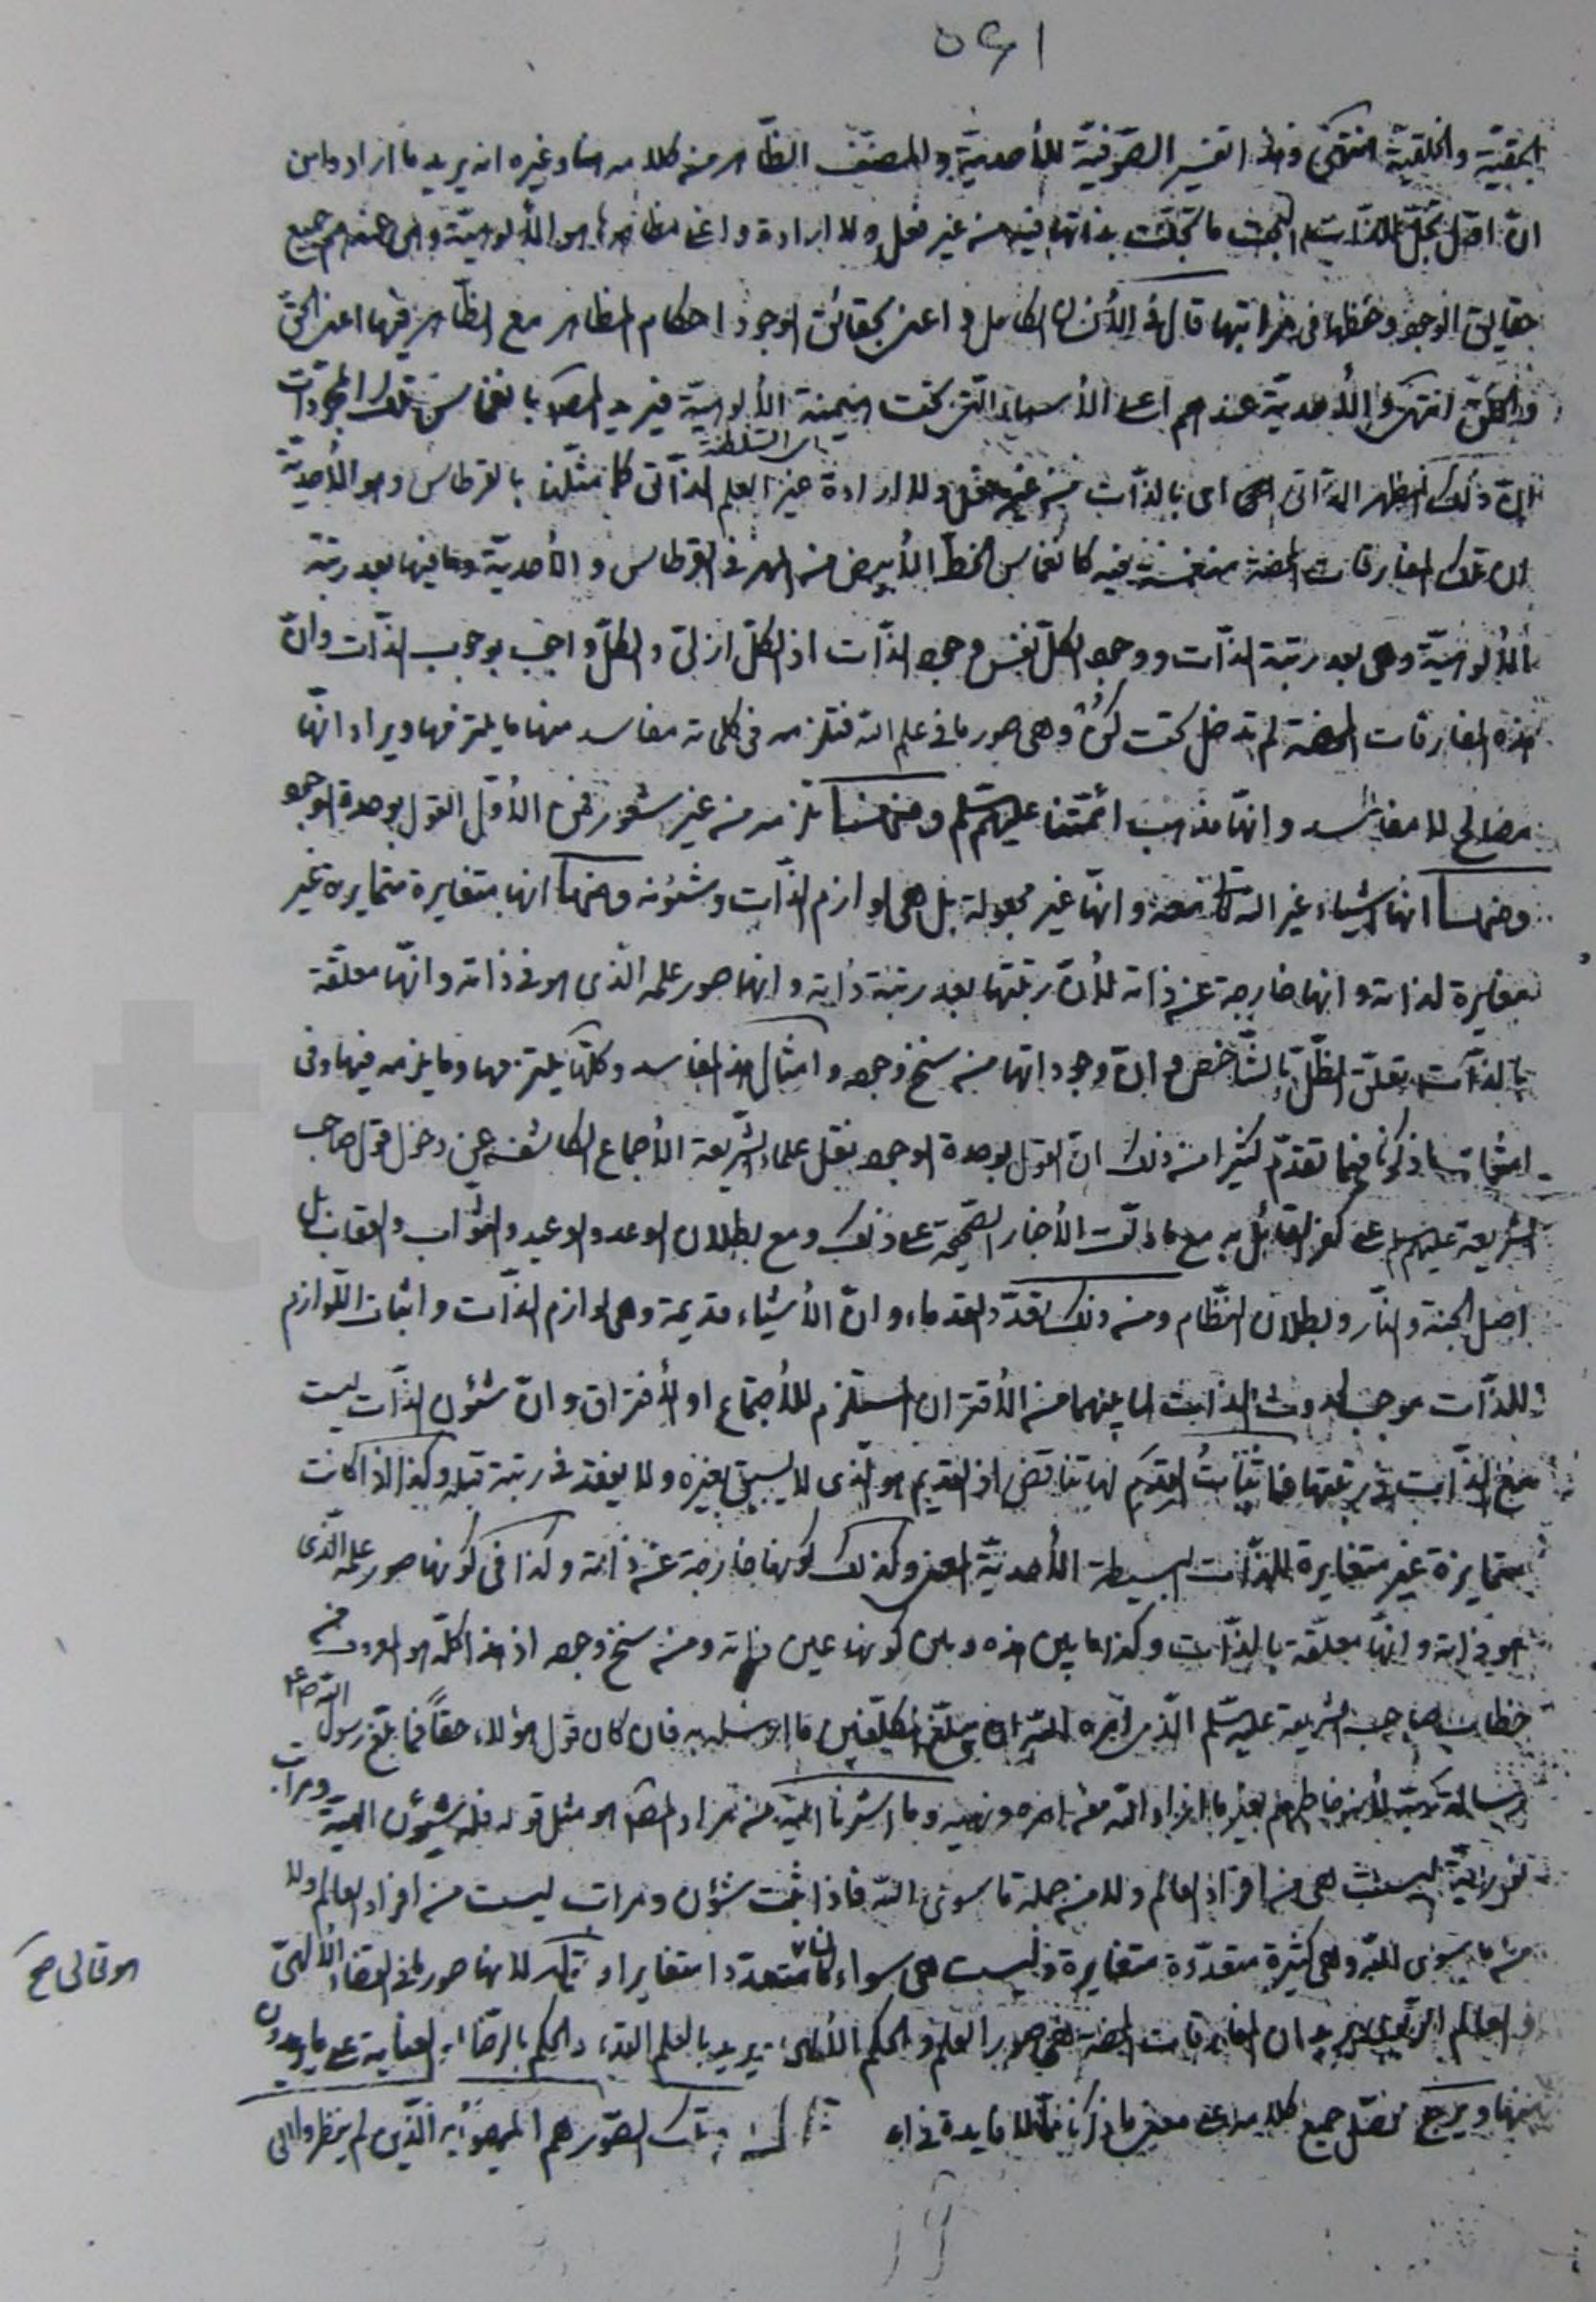 ٥٤١
الحقيّة والخلقيّة انتهى وهذا تفسير الصّوفيّة للأحديّة والمصنّف الظّاهر من كلامه هنا وغيره انه يريد ما ارادوا من
انّ اوّل تجلّ للذّات البحت ما تجلّت بذاتها فيه من غير فعل ولا ارادة واعلى مظاهرها هو الألوهيّة وهى عندهم جميع
حقايق الوجود وحفظها فى مراتبها قال فى الأنسان الكامل واعنى بحقائق الوجود احكام المظاهر مع الظّاهر فيها اعنى الحقّ
والخلق انتهى والأحديّة عندهم اعلى الأسماء الّتى تحت هيمنة الألوهيّة فيريد المصنّف بانغماس تلك المجرّدات
انّ ذلك المظهر الذّاتى اى بالذّات من غير فعل ولا ارادة غير العلم الذّاتى كما مثّلنا بالقرطاس وهو الأحديّة
ان تلك المفارقات المحضة منغمسة فيه كانغماس الخطّ الأبيض من المهر فى القرطاس والأحديّة وما فيها بعد رتبة
الألوهيّة وهى بعد رتبة الذّات ووجود الكلّ نفس وجود الذّات اذ الكلّ ازلىّ والكلّ واجب بوجوب الذّات وانّ
هذه المفارقات المحضة لم تدخل تحت كن وهى صور ما فى علم الله فتلزمه فى كلماته مفاسد منها ما يلتزمها ويراد انّها
مصالح لا مفاسد وانّها مذهب ائمّتنا عليهم السّلم ومنها ما تلزمه من غير شعور فمن الأوّل القول بوحدة الوجود
ومنها انها اشياء غير الله كائنة معه وانّها غير مجعولة بل هى لوازم الذّات وشئونه ومنها انها متغايرة متمايزة غير
مغايرة لذاته وانها خارجة عن ذاته لأنّ رتبتها بعد رتبة ذاته وانها صور علمه الّذى هو فى ذاته وانّها معلّقة
بالذّات تعلّق الظّلّ بالشّاخص وانّ وجوداتها من سنخ وجوده وامثال هذه المفاسد وكلّها يلتزمها وما يلزمه فيها وفى
امثالها ما ذكرنا فيما تقدّم كثيرا من ذلك انّ القول بوحدة الوجود نقل علماء الشّريعة الأجماع الكاشف عن دخول قول صاحب
الشريعة عليه السلم على كفر القائل به مع ما دلّت الأخبار الصّحيحة على ذلك ومع بطلان الوعد والوعيد والثّواب والعقاب بل
اصل الجنّة والنّار وبطلان النّظام ومن ذلك تعدّد القدماء وانّ الأشياء قديمة وهى لوازم الذّات واثبات اللّوازم
للذّات موجب لحدوث الذّات لما بينهما من الأقتران المستلزم للأجتماع او الأفتراق وانّ شئون الذّات ليست
مع الذّات فى رتبتها فاثبات القدم لها تناقض اذ القديم هو الّذى لا يسبق بغيره ولا يفقد فى رتبة قبله وكذا اذا كانت
متمايزة غير متغايرة للذّات البسيطة الأحديّة المعنى وكذلك كونها خارجة عن ذاته وكذا فى كونها صور علمه الّذى
هو فى ذاته وانّها معلّقة بالذّات وكذا ما بين هذه وبين كونها عين ذاته ومن سنخ وجوده اذ هذا كلّه هو المعروف من
خطاب صاحب الشريعة عليه السّلم الّذى امره الله ان يبلّغ المكلّفين ما ارسله به فان كان قول هؤلاء حقّاً فما بلّغ رسول الله ص
رسالة ربّه لأنه خاطبهم بغير ما اراد الله من امره ونهيه وما اشرنا اليه من مراد المصنّف هو مثل قوله فله شئون الهيّة ومراتب
نورانيّة ليست هى من افراد العالم ولا من جملة ما سوى الله فاذا ثبت شؤن ومراتب ليست من افراد العالم ولا
من ما سوى الله وهى كثيرة متعدّدة متغايرة وليست هى سواه كان متعدّدا متغايرا لأنها صور ما فى القضاء الألهىّ
والعالم الرّبوبى يريد ان المفارقات المحضة هى صور العلم والحكم الألهى يريد بالعلم القدر والحكم بالرضاء العناية على ما يريدون
منها ويرجع حاصل جميع كلامه الى معنى ما ذكرنا ممّا لا فايدة فى ذكره قال وتلك الصّور هم المهيمون الّذين لم ينظروا الى
هو تعالى صح